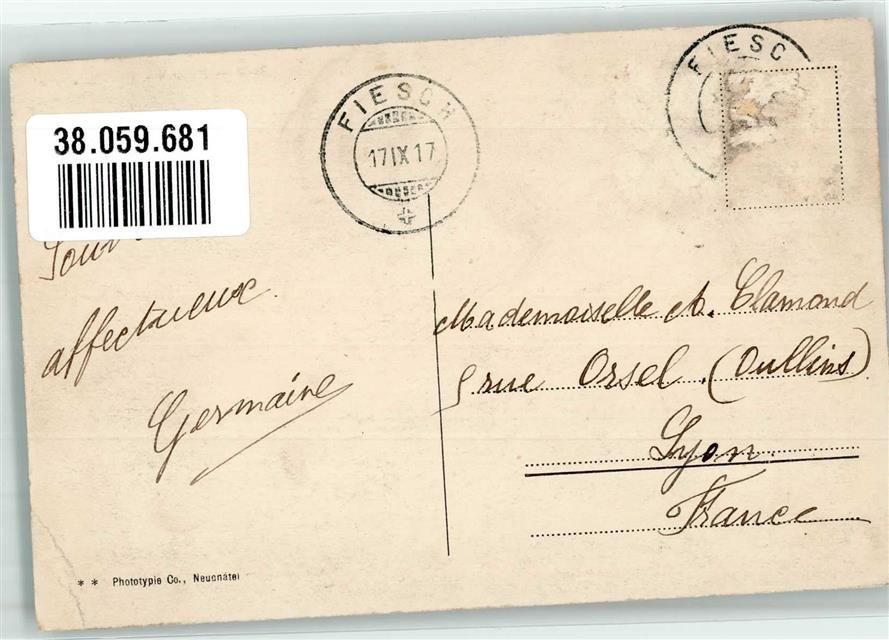 38.059.681
FIESCH
17 IX 17
FIESC
affectueux
Germaine
Mademoiselle A. Clamond
5 rue Orsel. (Oullins)
Lyon.
France
* * Phototypie Co., Neuchâtel